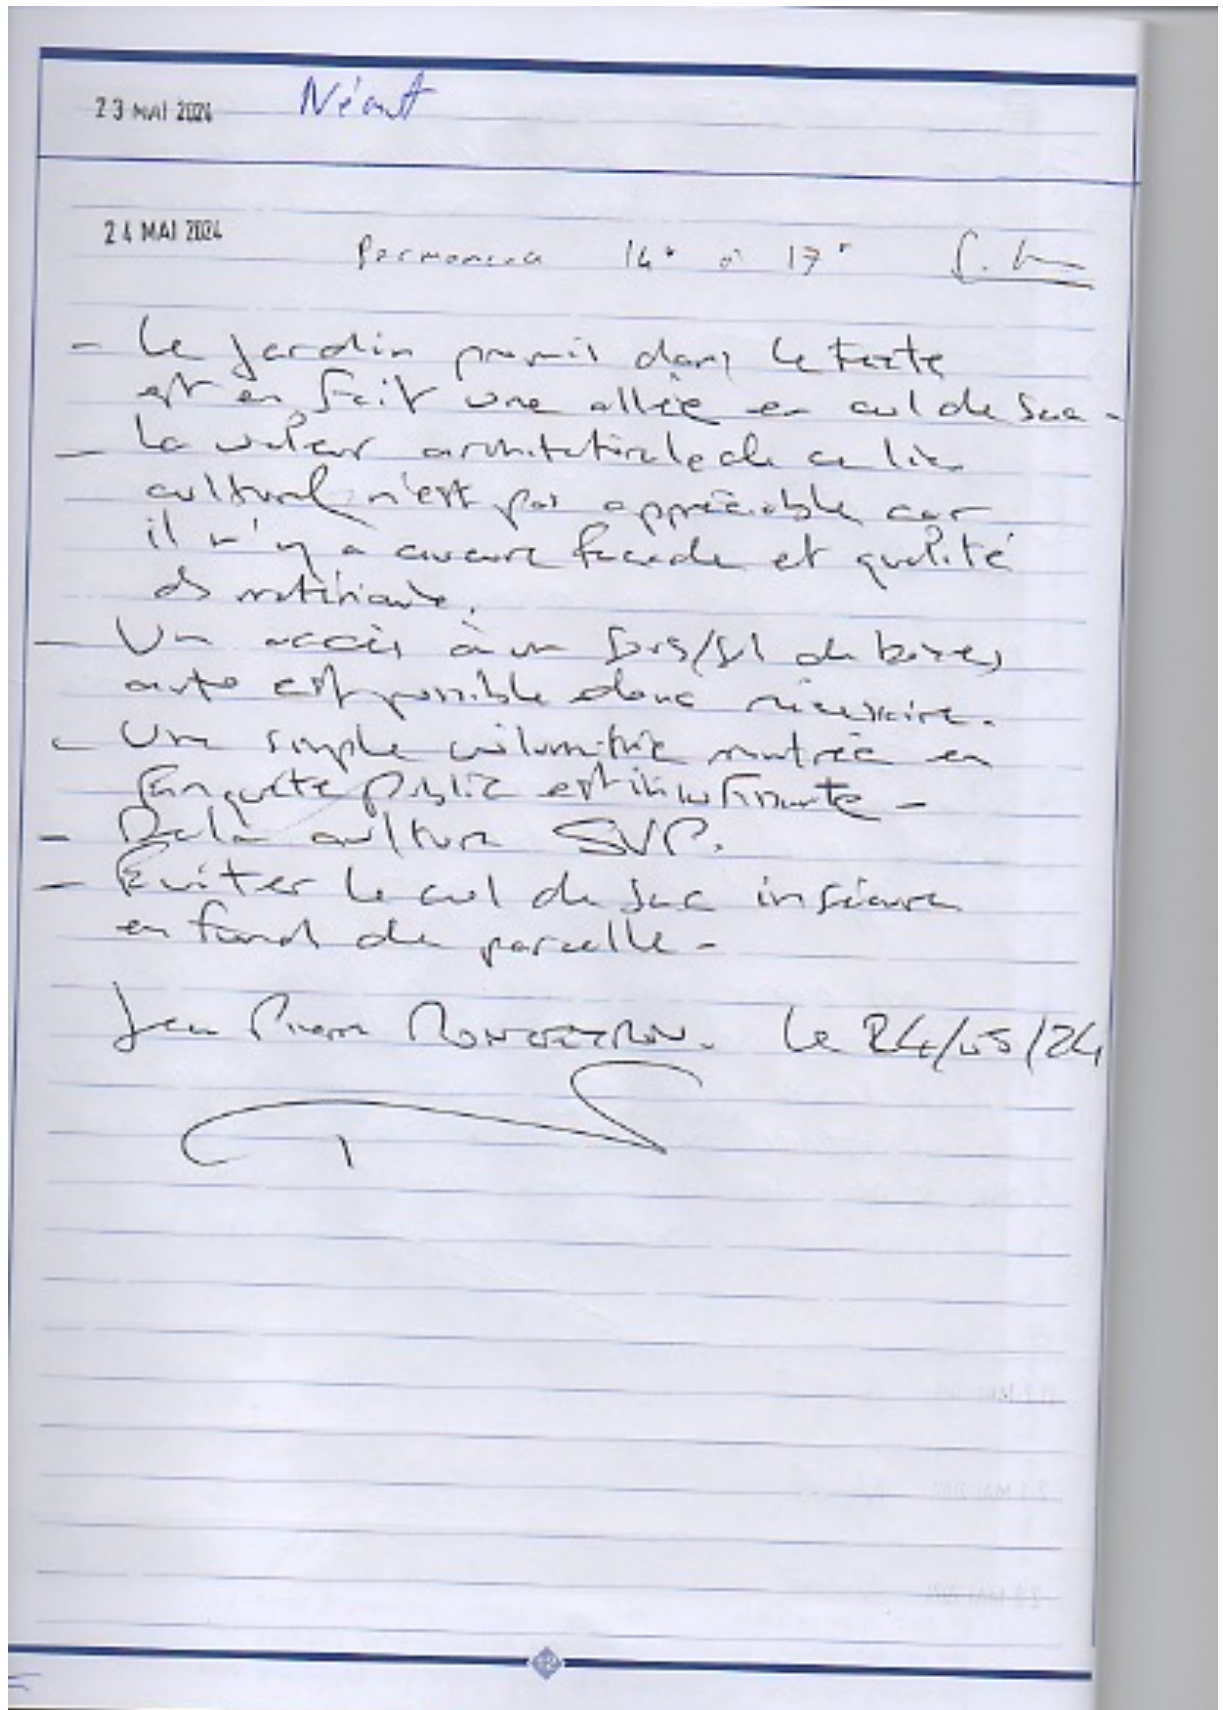 23 MAI 2024 Néant
24 MAI 2024
Permanence 14h à 17h
- Le jardin promis dans le texte
est en fait une allée en cul de sac -
- La valeur architecturale de ce lieu
culturel n'est pas appréciable car
il n'y a aucune facade et qualité
ds matériaux.
- Un accès à un sous/sl de boxes
auto est possible donc nécessaire.
- Une simple volumétrie montrée en
Enquête Public est insuffisante -
- De la culture SVP.
- Eviter le cul de sac
en fond de parcelle -
Jean Pierre le 24/05/24